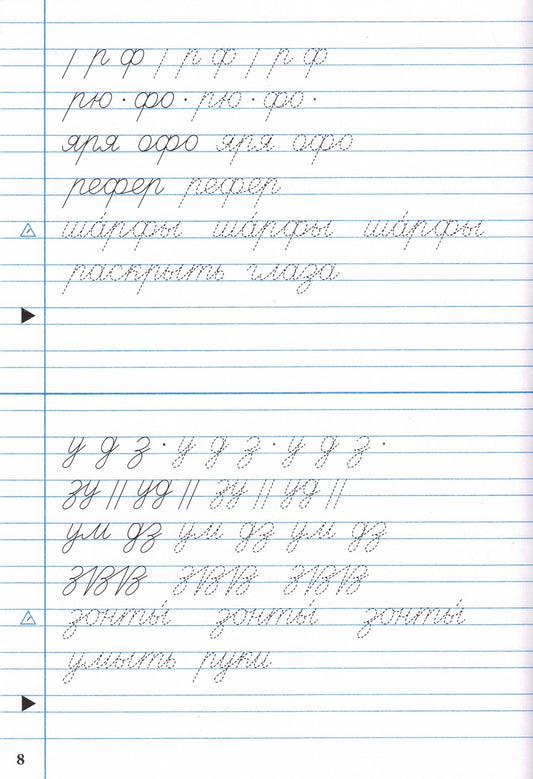 / р ф / р ф / р ф
рю · фо · рю · фо ·
яря офо яря офо
рефер рефер
ша́рфы ша́рфы ша́рфы
раскрыть глаза
у д з · у д з · у д з ·
зу || уд || зу || уд ||
ум дз ум дз ум дз
зѴвѴв зѴвѴв зѴвѴв
зонты́ зонты́ зонты́
умыть руки
8